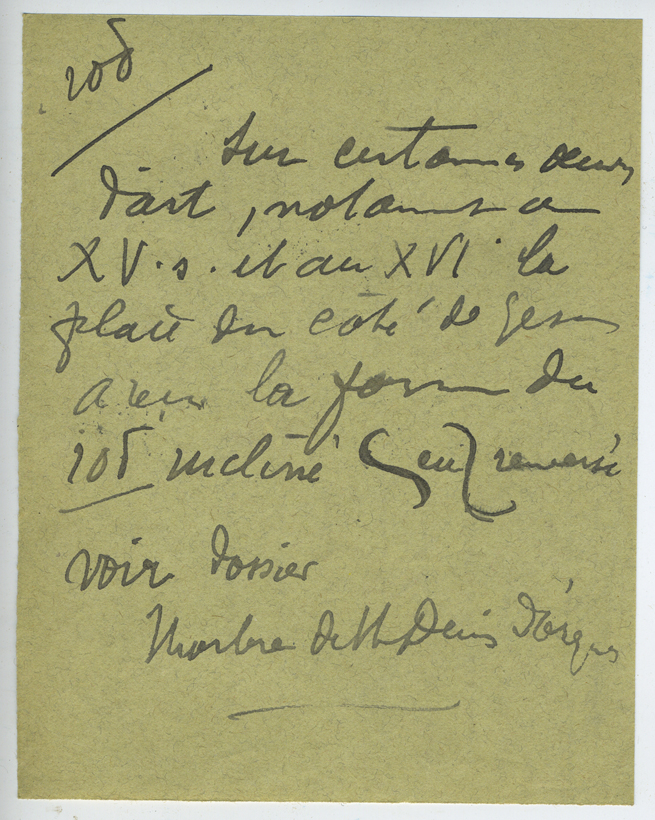 iod
Sur certaines œuvres
d'art, notamment au
XV.s. et au XVI. la
plaie du côté de Jesus
a reçu la forme du
iod incliné (ou renversé
voir dossier
Marbre de St Denis d'Orques